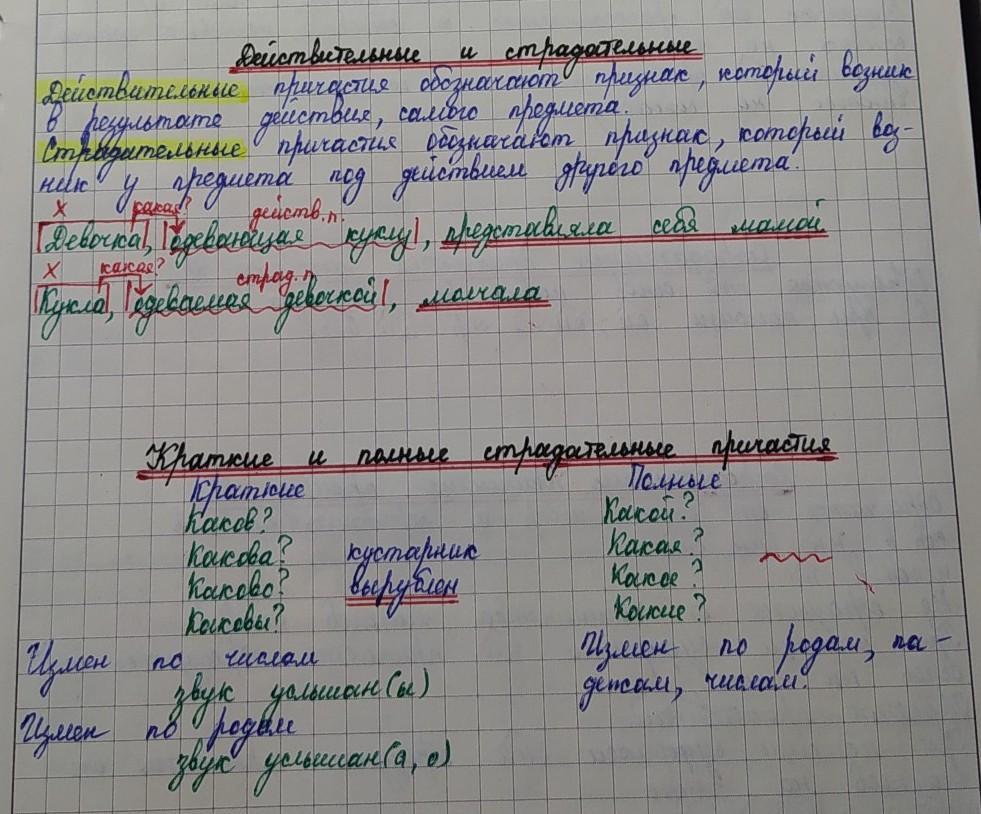 Действительные и страдательные
Действительные причастия обозначают признак, который возник
в результате действия, самого предмета.
Страдательные причастия обозначают признак, который воз-
ник у предмета под действием другого предмета.
х какая? действ.п.
|Девочка|, |одевающая куклу|, представляла себя мамой
х какая? страд.п.
|Кукла|, |одеваемая девочкой|, молчала
Краткие и полные страдательные причастия
Краткие Полные
Каков? Какой?
Какова? кустарник Какая?
Каково? вырублен Какое?
Каковы? Какие?
Измен по числам Измен по родам, па-
звук услышан(ы) дежам, числам.
Измен по родам
звук услышан(а, о)